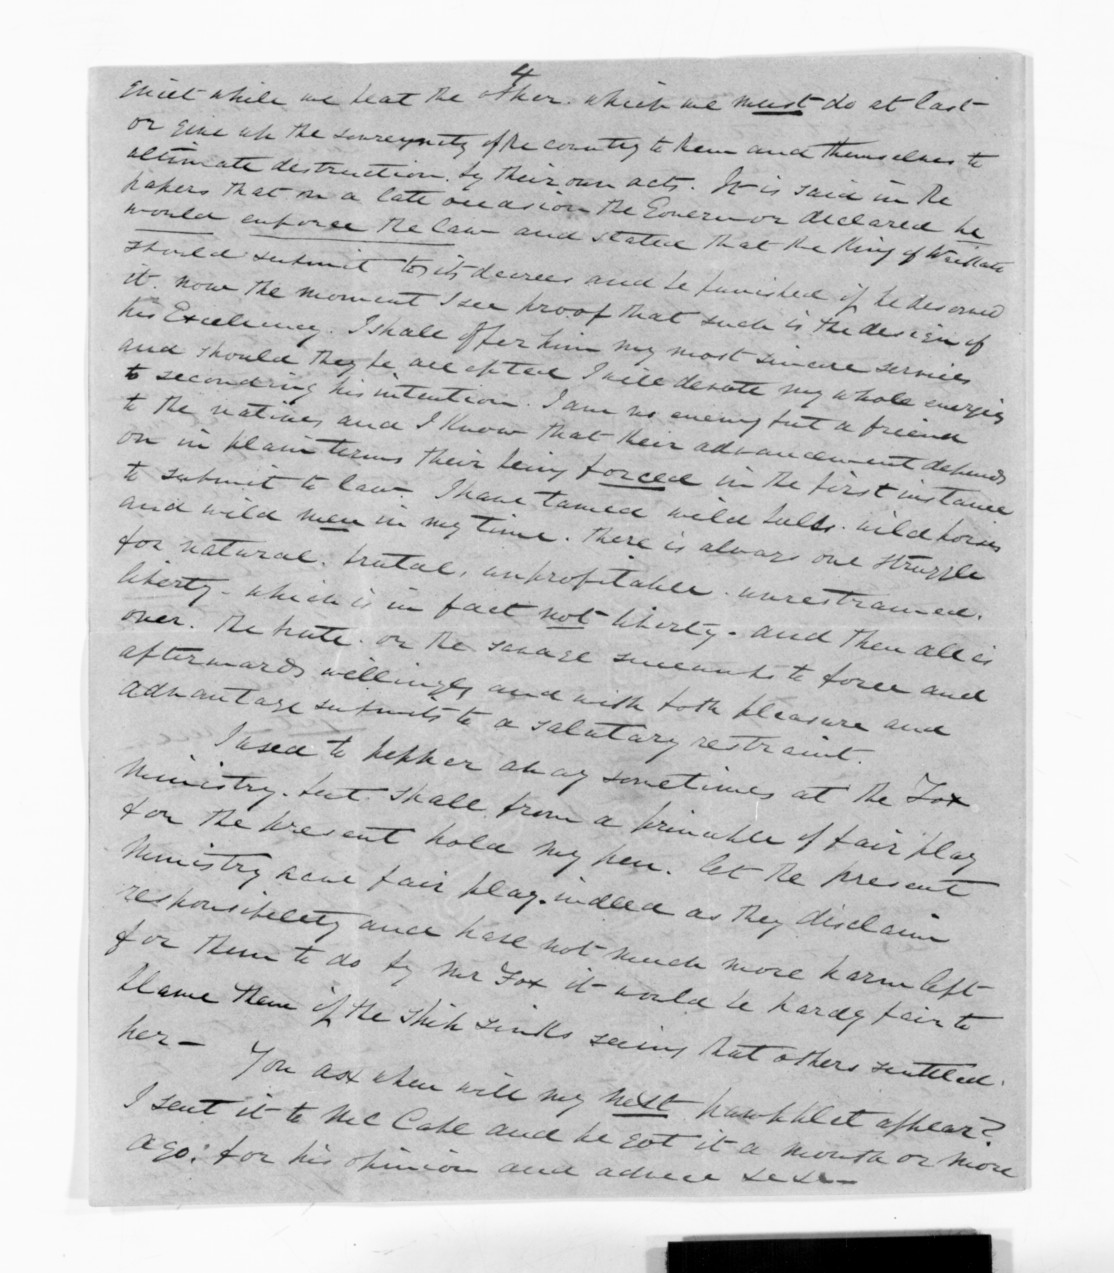 4
quiet while we beat the other. which we must do at last
or give up the sovreynity of the country to them and themselves to
ultimate destruction. by their own acts. It is said in the
papers that on a late occasion the Governor declared he
would enforce the law and stated that the King of Waikato
should submit to its decrees and be punished if he deserved
it. now the moment I see proof that such is the design of
his Excelency. I shall offer him my most sincere services
and should they be accepted I will devote my whole energies
to seconding his intention. I am no enemy but a friend
to the natives and I know that their advancement depends
on in plain terms their being forced in the first instance
to submit to law. I have tamed wild bulls. wild horses
and wild men in my time. there is always one struggle
for natural. brutal, unprofitable. unrestrained.
liberty - which is in fact not liberty - and then all is
over. the brute. or the savage succumbs to force and
afterwards willingly and with both pleasure and
advantage submits to a salutary restraint.
I used to pepper away sometimes at the Fox
Ministry. but shall from a principle of fair play
for the present hold my pen. let the present
Ministry have fair play. indeed as they disclaim
responsibility and have not much more harm left
for them to do by Mr Fox it would be hardly fair to
blame them if the ship sinks seeing that others scuttled
her -
You ask when will my next pamphlet appear?
I sent it to McCabe and he got it a month or more
ago: for his opinion and advice